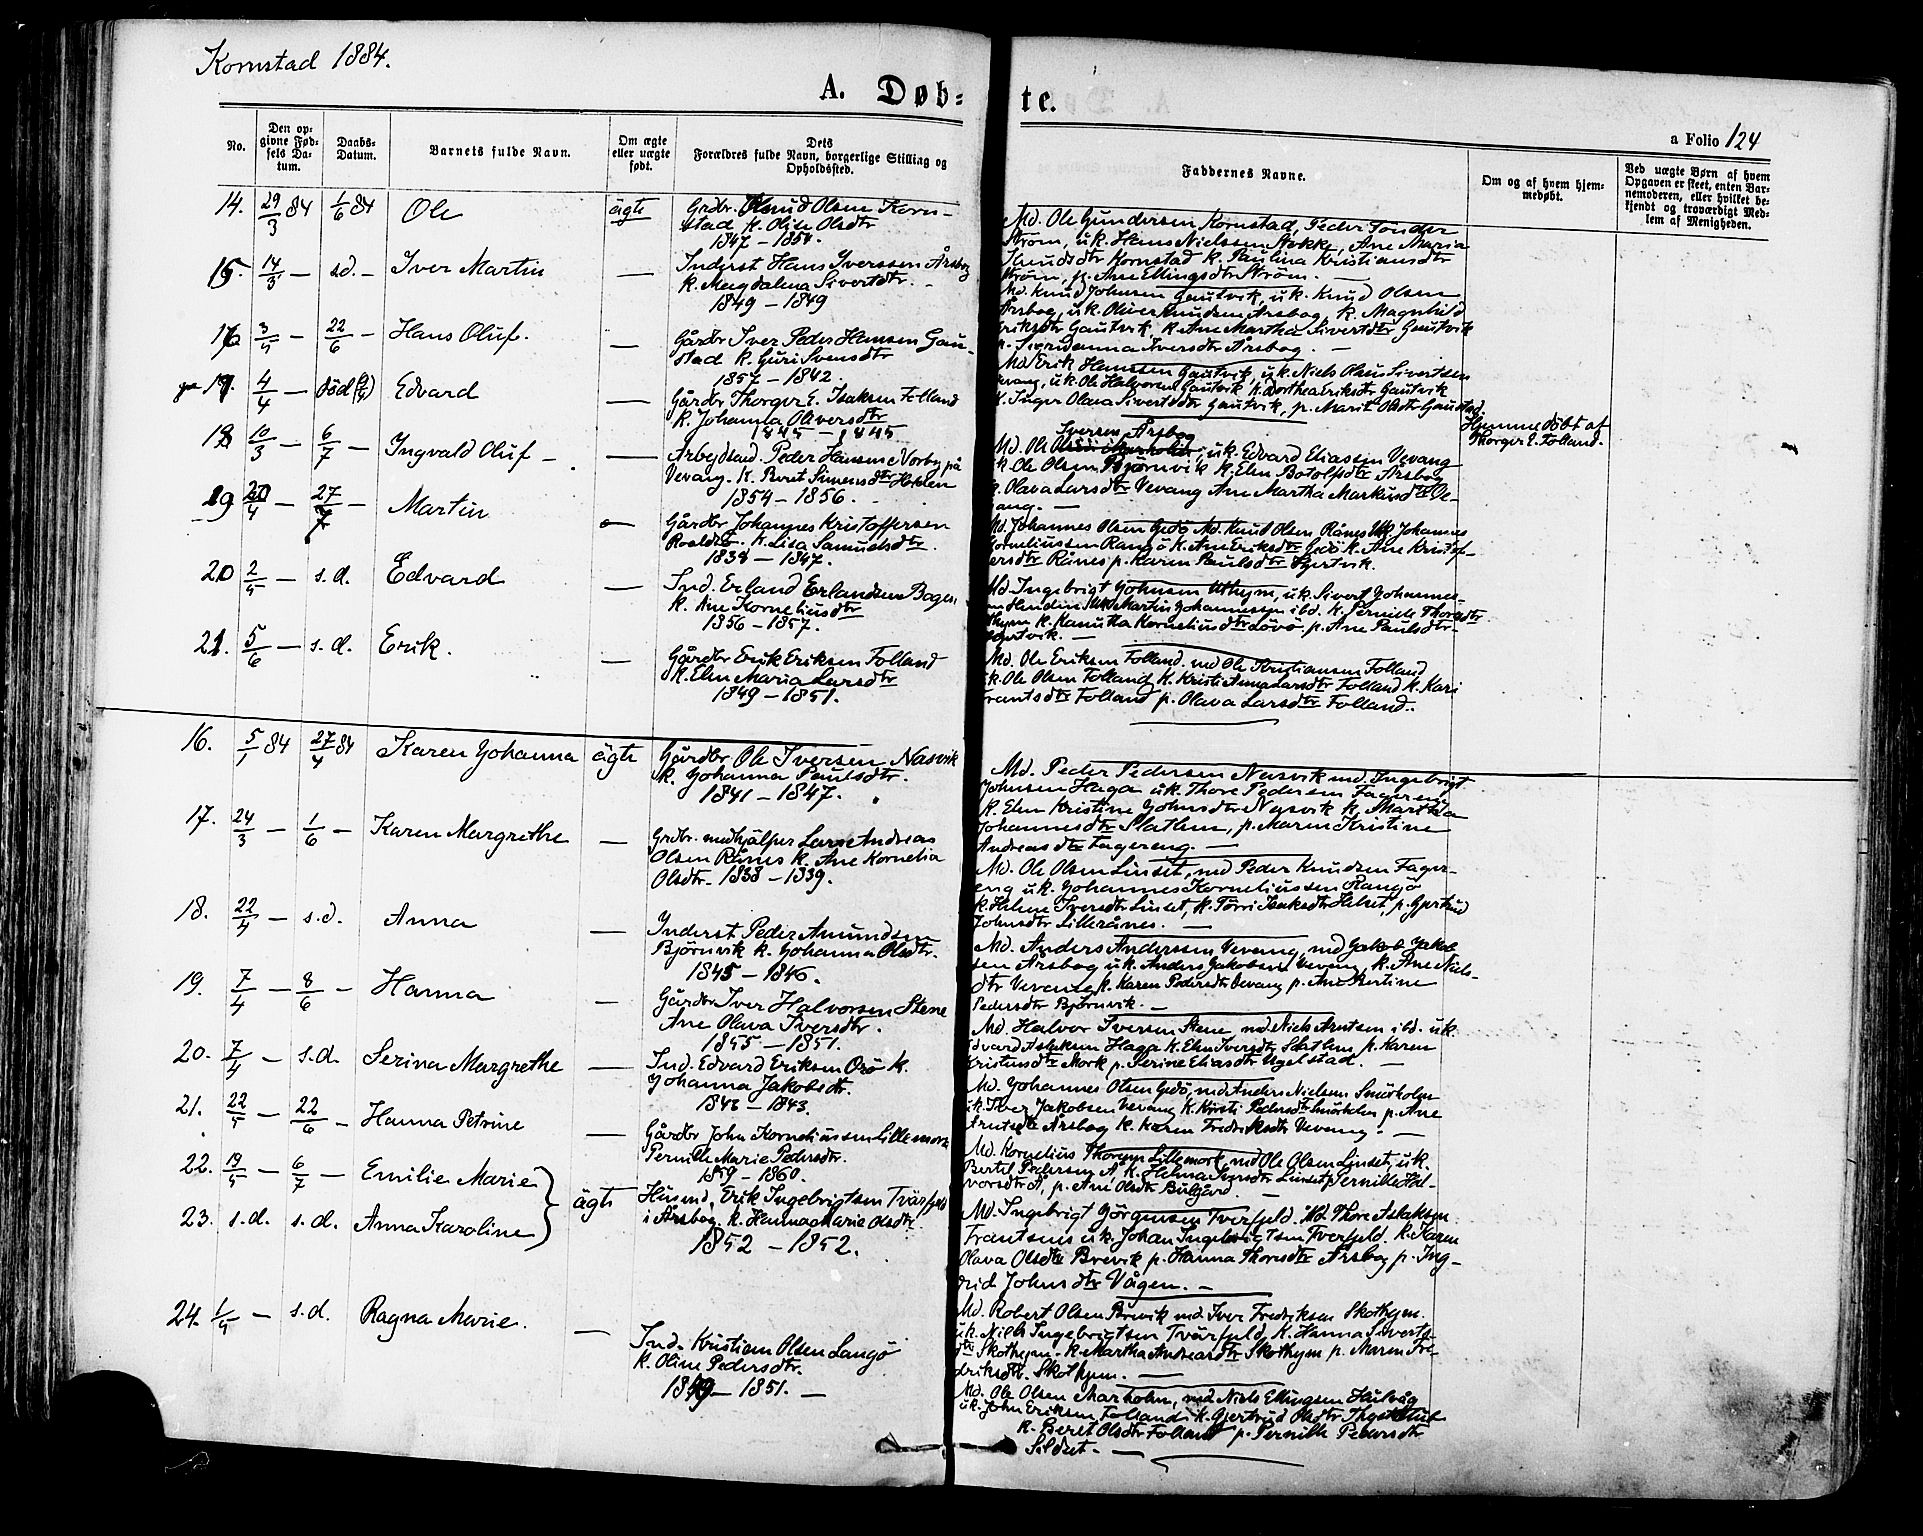 Kornstad 1884.
A. Døb- te.
a Folio 124
No.
Den op-
givne Fød-
sels Da-
tum.
Daabs-
Datum.
Barnets fulde Navn.
Om ægte
eller uægte
født.
Dets
Forældres fulde Navn, borgerlige Stilling og
Opholdssted.
Faddernes Navne.
Om og af hvem hjem-
medøbt.
Ved uægte Børn af hvem
Opgaven er skeet, enten Bar-
nemoderen, eller hvilket be-
kjendt og troværdigt Med-
lem af Menigheden.
14. 29/3 84 1/6 84 Ole ägte Grdbr. Olsen Korn-
stad k. Oline Olsdtr
1847 - 1854.
Md. Ole Gundersen Kornstad, Peder Tönder
Ström, u.k. Hans Nielssen Stokke, Ane Maria
Kornstad k. Paulina Kristiansdtr
Ström, p. Ane Ellingsdtr Ström. -
15. 14/3 - sd. - Iver Martin — Inderst Hans Iverssen Årsbog
k. Magdalena Sivertdtr. -
1849 - 1849
Md. Knud Johnsen Gautvik, u.k. Knud Olsen
Årsbog, u.k. Oliver Knudsen Årsbog, k. Magnhild
Eriksdtr Gautvik, k. Ane Martha Sivertdtr Gautvik
p. Iversdtr Årsbog. -
16 3/5 - 22/6 - Hans Oluf. — Gårdbr Iver Peder Hansen Gau-
stad k. Guri Svensdtr
1857 - 1842.
Md Erik Hanssen Gautvik, u.k. Niels Olaus Sivertsen
Vevang, u.k. Ole Halvorsen Gautvik k. Dorthea Eriksdtr Gautvik
k. Inger Olava Sivertsdtr Gautvik, p. Marit Olsdtr Gaustad.
17. 4/4 - död Edvard — Gårdbr Thorger E. Isaksen Folland
k. Johanna Oliversdtr
1845 - 1845
Hjemmedöbt af
Thorger E. Folland.
18 10/3 - 6/7 - Ingvald Oluf - — Arbejdsmd. Peder Hansen Norby på
Vevang. k. Beret Simensdtr Holden
1854 - 1856.
Iversen Årsbog
Md. Ole, u.k. Edvard Eliassen Vevang
k. Ole Olsen Björnvik k. Elen Botolfsdtr Årsbog
k. Olava Larsdtr Vevang Ane Martha Markusdtr Ve-
vang. -
19 20/4 - 27/7 - Martin — Gårdbr Johannes Kristoffersen
k. Lisa Samuelsdtr.
1838 - 1847.
Md. Johannes Olsen Gedö Md. Knud Olsen Rånes Johannes
Korneliussen Rangö k. Ane Eriksdtr Gedö k. Ane Kristof-
fersdtr Rånes p. Karen Paulsdtr
20 2/5 - s.d. Edvard — Ind. Erland Erlandsen Bogen
k. Ane Korneliusdtr
1856 - 1857.
Md. Ingebrigt Johnsen Uthjem, u.k. Sivert Johannes-
sen Martin Johannessen ibd. k. Pernille Thoresdtr
Uthjem k. Kanutta Korneliusdtr Lövö. p. Ane Paulsdtr
21 5/6 - s.d. Erik. — Gårdbr Erik Eriksen Folland
k. Elen Maria Larsdtr
1849 - 1851.
Md. Ole Eriksen Folland. md Ole Kristiansen Folland
u.k. Ole Olsen Folland k. Kristi Anna Larsdtr Folland k. Kari
Frantsdtr Folland p. Olava Larsdtr Folland.
16. 5/1 84 27/4 84 Karen Johanna ägte Gårdbr Ole Iversen Nasvik
k. Johanna Paulsdtr.
1841 - 1847.
Md. Peder Pedersen Nasvik md. Ingebrigt
Johnsen Haga u.k. Thore Pedersen Fagereng
k. Elen Kristine Johnsdtr Nasvik k. Martha
Johannesdtr Slatlem, p. Maren Kristine
Andreasdtr Fagereng. -
17. 24/3 - 1/6 - Karen Margrethe — Grdbr. medhjälper Lars Andreas
Olsen Rånes k. Ane Kornelia
Olsdtr. 1838 - 1839.
Md. Ole Olsen Linset, md Peder Knudsen Fager-
eng u.k. Johannes Korneliussen Rangö
k. Helene Iversdtr Linset, k. Törri Isaksdtr Helset, p. Gjertrud
Johnsdtr Lillerånes. -
18. 22/4 - s.d. Anna — Inderst Peder Amundsen
Björnvik k. Johanna Olsdtr.
1845 - 1846.
Md. Anders Anderssen Vevang, md Jakob Jakob
sen Årsbog u.k. Anders Jakobsen Vevang, k. Ane Niels-
dtr Vevang k. Karen Pedersdtr Vevang p. Ane Bertine
Pedersdtr Björnvik. -
19. 7/4 - 8/6 - Hanna — Gårdbr Iver Halvorsen Stene
Ane Olava Iversdtr.
1845 - 1851.
Md. Halvor Iversen Stene md Niels Arntsen ibd. u.k.
Edvard Aslaksen Haga k. Elen Iversdtr Slatlem k. Karen
Kristensdtr Mork p. Serine Eliasdtr Ugelstad. -
20. 7/4 - s.d. Serina Margrethe — Ind. Edvard Eriksen Orö k.
Johanna Jakobsdtr.
1843 - 1843.
Md. Johannes Olsen Gedö, md Anders Nielsen Smörholm
u.k. Iver Jakobsen Vevang k. Kirsti Pedersdtr Smörholm p. Ane
Arntsdtr Årsbog k. Karen Fredriksdtr Vevang. -
21. 22/5 - 22/6 - Hanna Petrine — Gårdbr John Korneliussen Lillemork
Pernille Marie Pedersdtr.
1859 - 1860.
Md. Kornelius Thoresen Lillemork, md Ole Olsen Linset, u.k.
Bertel Pedersen Å, k. Helena Linset, Pernille Hal-
vorsdtr Å, p. Ane Olsdtr Bulgård. -
22. 19/5 - 6/7 - Emilie Marie
23. s.d. s.d. Anna Karoline ägte Husmd. Erik Ingebrigtsen Tvärfjeld
i Årsbog. k. Hanna Marie Olsdtr.
1852 - 1852.
Md. Ingebrigt Jörgensen Tverfjeld. Md. Thore Aslaksen
Frantsens u.k. Johan Ingebrigtsen Tverfjeld. k. Karen
Olava Olsdtr Brevik p. Hanna Thoresdtr Årsbog p. Ing-
drid Johnsdtr Vågen. -
24. 1/5 - s.d. Ragna Marie. — Ind. Kristian Olsen Langö
k. Oline Pedersdtr.
1849 - 1851. -
Md. Robert Olsen Brevik md Iver Fredriksen Skothjem.
u.k. Niels Ingebrigtsen Tvärfjeld, k. Hanna Siverts-
dtr Skothjem. k. Martha Andreasdtr Skothjem p. Maren Fre-
driksdtr. Skothjem. -
Md. Ole Olsen Marholm, md. Niels Ellingsen Hulvåg
u.k. John Eriksen Folland k. Gjertrud Olsdtr
k. Beret Olsdtr Folland p. Pernille Pedersdtr